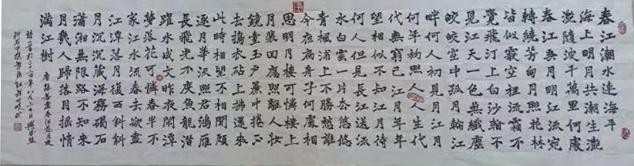 春江潮水連海平
海上明月共潮生灩
灩隨波千萬里何處
春江無月明江流宛
轉繞芳甸月照花林
皆似霰空裡流霜不
覺飛汀上白沙看不
見江天一色無纖塵
皎皎空中孤月輪江
畔何人初見月江月
何年初照人人生代
代無窮已江月年年
望相似不知江月待
何人但見長江送流
水白雲一片去悠悠
青楓浦上不勝愁誰家
今夜扁舟子何處相
思明月樓可憐樓上
月裴回應照離人妝
鏡臺玉戶簾中捲不
去搗衣砧上拂還來
此時相望不相聞願
逐月華流照君鴻雁
長飛光不度魚龍潛
躍水成文昨夜閒潭
夢落花可憐春半不還
家江水流春去欲盡
江潭落月復西斜斜
月沉沉藏海霧碣石
瀟湘無限路不知乘
月幾人歸落月搖情
滿江樹 唐張若虛春江花月夜